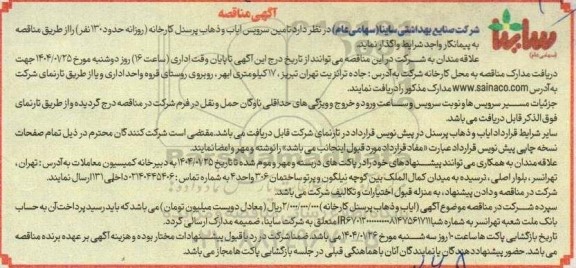 آگهی مناقصه
ساینا
(سهامی عام)
شرکت صنایع بهداشتی ساینا (سهامی عام) در نظر دارد تامین سرویس ایاب و ذهاب پرسنل کارخانه (روزانه حدود ۱۳۰ نفر) را از طریق مناقصه
به پیمانکار واجد شرایط واگذار نماید.
علاقه مندان به شرکت در این مناقصه می توانند از تاریخ درج این آگهی تا پایان وقت اداری (ساعت ۱۶) روز دوشنبه مورخ ۱۴۰۴/۰۷/۲۵ جهت
دریافت مدارک مناقصه به محل کارخانه شرکت به آدرس : جاده ترانزیت تهران تبریز، ۱۷ کیلومتری ابهر، روبروی روستای قروه واحد اداری و یا از طریق تارنمای شرکت
به آدرس www.sainaco.com مدارک مذکور را دریافت نمایند.
جزئیات مسیر سرویس ها و نوبت سرویس و ساعت ورود و خروج و ویژگی های حداقلی ناوگان حمل و نقل در فرم شرکت در مناقصه درج گردیده و از طریق تارنمای
فوق الذکر قابل دریافت می باشد.
سایر شرایط قرارداد ایاب و ذهاب پرسنل در پیش نویس قرارداد در تارنمای شرکت قابل دریافت می باشد. مقتضی است شرکت کنندگان محترم در ذیل تمام صفحات
نسخه چاپی پیش نویس قرارداد عبارت «مفاد قرارداد مورد قبول اینجانب می باشد» را نوشته و مهر و امضا نمایند.
علاقه مندان به همکاری می توانند پیشنهادهای خود را در پاکت های دربسته و مهر و موم شده تا تاریخ ۱۴۰۴/۰۷/۲۵ به دبیرخانه کمیسیون معاملات به آدرس : تهران،
تهرانسر، بلوار اصلی، نرسیده به میدان کمال الملک بین کوچه نیلگون و پرتو ساختمان ۳۰۶ واحد ۴ به شماره تماس: ۴۴۵۴۰۶-۰۲۱ داخلی ۱۳۱ ارسال نمایند.
شرکت در مناقصه و دادن پیشنهاد، به منزله قبول اختیارات و تکالیف شرکت می باشد.
سپرده شرکت در مناقصه موضوع آگهی (ایاب و ذهاب پرسنل کارخانه) ۲/۰۰۰/۰۰۰/۰۰۰ ریال (معادل دویست میلیون تومان) می باشد که باید رسید پرداخت آن به حساب
بانک ملت شعبه تهرانسر به شماره شبا متعلق به شرکت ساینا، ضمیمه مدارک ارسالی گردد.
تاریخ بازگشایی پاکت ها ساعت ۱۰ روز سه شنبه مورخ می باشد. ضمنا شرکت در رد یا قبول پیشنهادات مختار بوده و هزینه آگهی بر عهده برنده مناقصه
می باشد. حضور پیشنهاد دهندگان یا نمایندگان آنان با هماهنگی قبلی در جلسه بازگشایی پاکت ها مجاز می باشد.